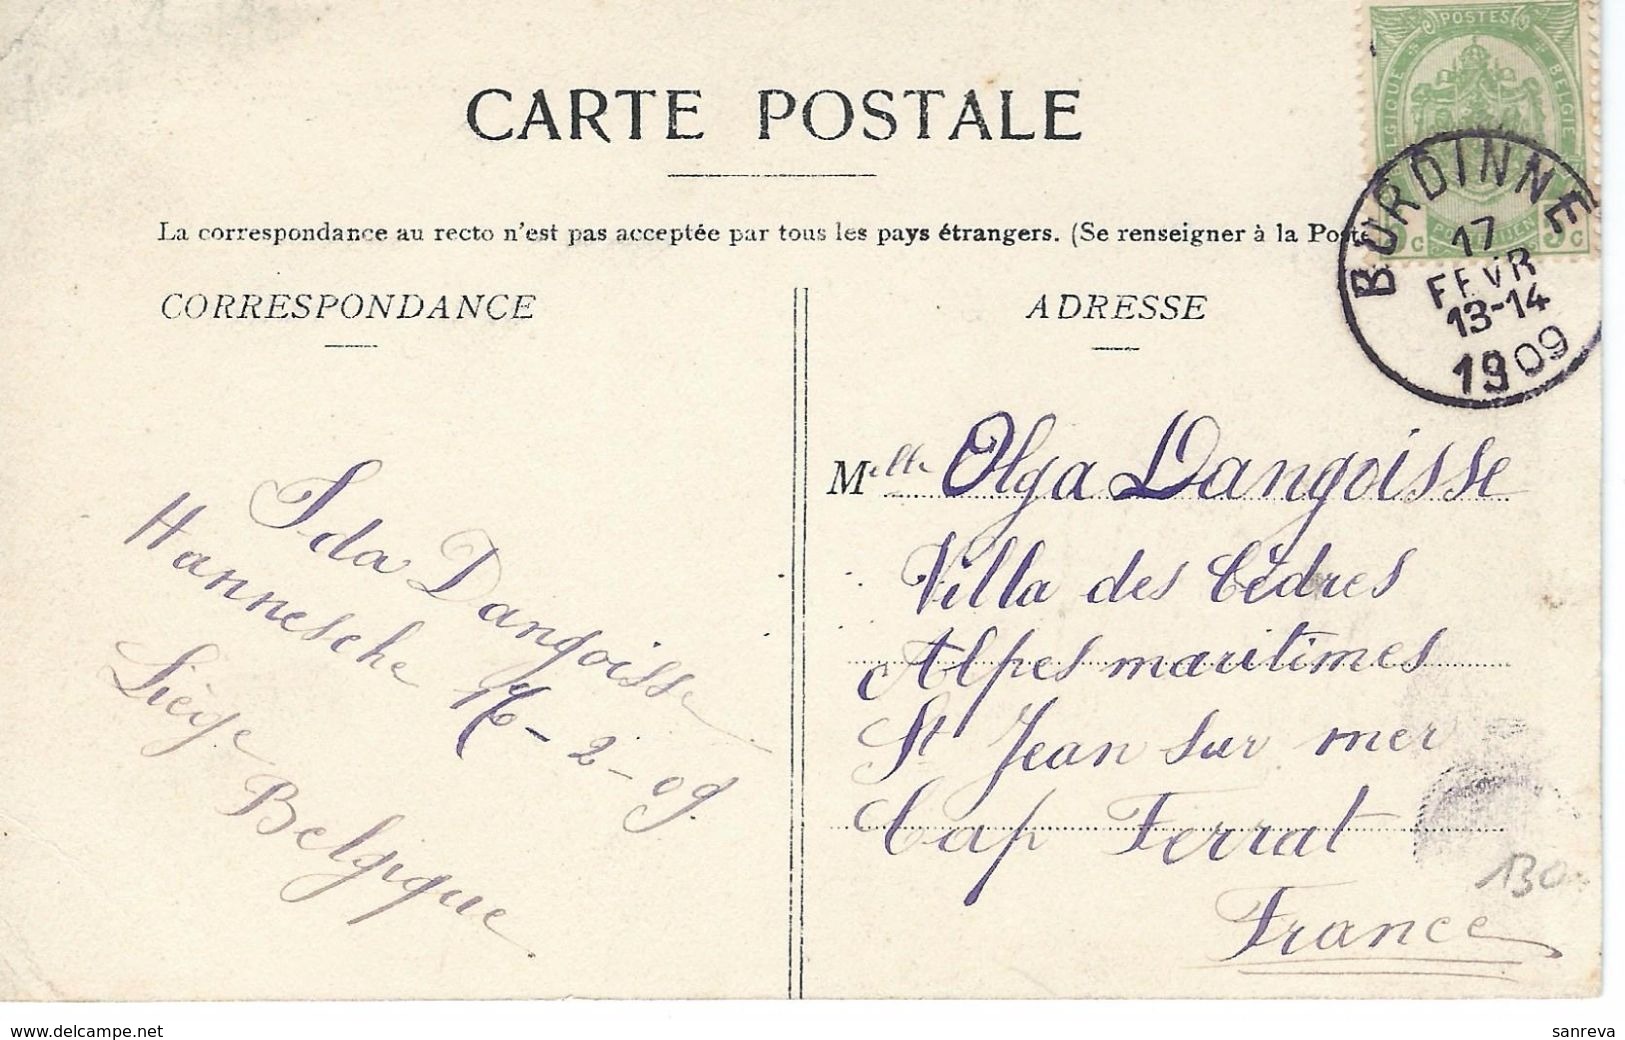 CARTE POSTALE
POSTES
BELGIQUE
BELGIË
POSTERIJEN
5c
BURDINNE
17
FEVR
13-14
1909
La correspondance au recto n'est pas acceptée par tous les pays étrangers. (Se renseigner à la Poste
CORRESPONDANCE
Ida Dangoisse
Hannesche 16-2-09.
Liège
Belgique
ADRESSE
Melle Olga Dangoisse
Villa des Cèdres
Alpes maritimes
St Jean sur mer
Cap Ferrat
France
www.delcampe.net
sanreva